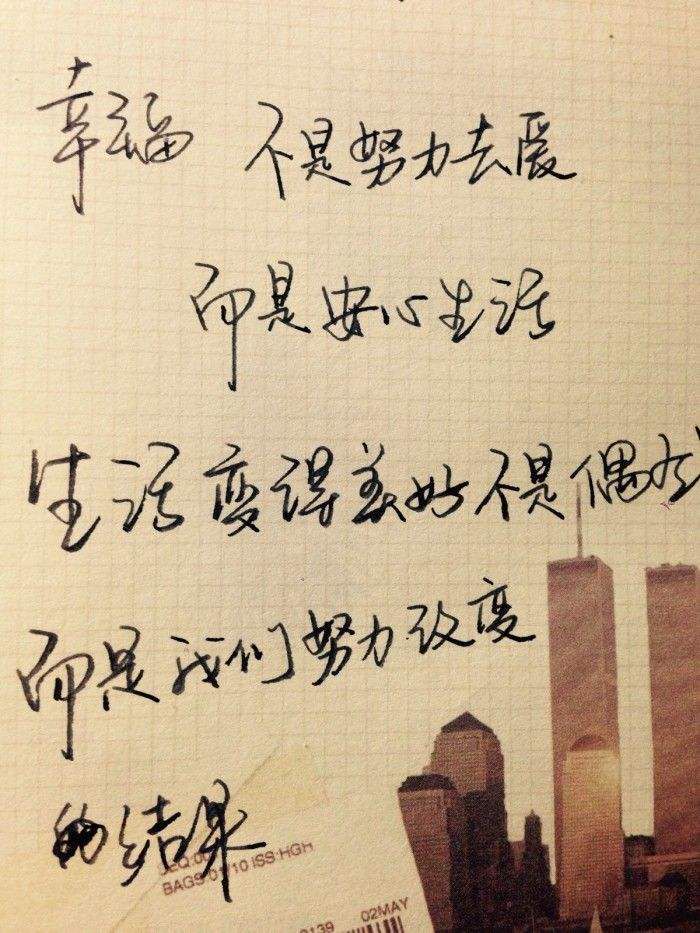 幸福 不是努力去爱
而是安心生活
生活变得美好不是偶然
而是我们努力改变
的结果
BAGS 01/10 ISS:HGH
0139 02MAY